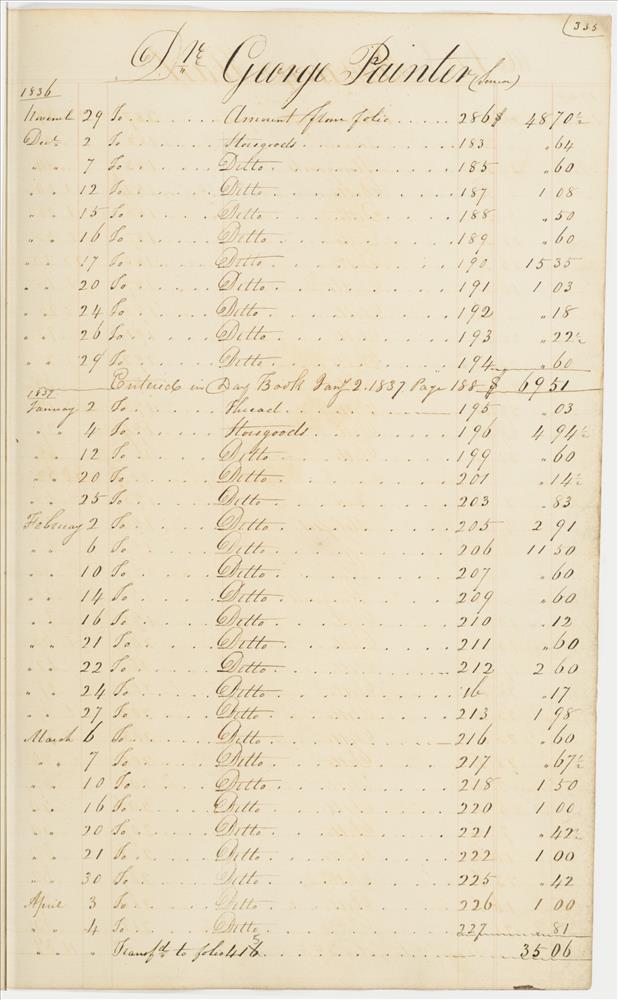 335
Dr. George Painter (Senior)
1836
November 29 To . . . . . Amount from folio . . . . 286 $ 48 70½
Decr. 2 To . . . . . Storegoods . . . . . 183 " 64
" " 7 To . . . . . Ditto . . . . . 185 " 60
" " 12 To . . . . . Ditto . . . . . 187 1 08
" " 15 To . . . . . Ditto . . . . . 188 " 50
" " 16 To . . . . . Ditto . . . . . 189 " 60
" " 17 To . . . . . Ditto . . . . . 190 15 35
" " 20 To . . . . . Ditto . . . . . 191 1 03
" " 24 To . . . . . Ditto . . . . . 192 " 18
" " 26 To . . . . . Ditto . . . . . 193 " 22½
" " 29 To . . . . . Ditto . . . . . 194 " 60
Entered in Day Book Jany 2. 1837 Page 188 $ 69 51
1837
January 2 To . . . . . Thread . . . . . 195 " 03
" " 4 To . . . . . Storegoods . . . . . 196 4 94½
" " 12 To . . . . . Ditto . . . . . 199 " 60
" " 20 To . . . . . Ditto . . . . . 201 " 14½
" " 25 To . . . . . Ditto . . . . . 203 " 83
February 2 To . . . . . Ditto . . . . . 205 2 91
" " 6 To . . . . . Ditto . . . . . 206 11 50
" " 10 To . . . . . Ditto . . . . . 207 " 60
" " 14 To . . . . . Ditto . . . . . 209 " 60
" " 16 To . . . . . Ditto . . . . . 210 " 12
" " 21 To . . . . . Ditto . . . . . 211 " 60
" " 22 To . . . . . Ditto . . . . . 212 2 60
" " 24 To . . . . . Ditto . . . . . 16 " 17
" " 27 To . . . . . Ditto . . . . . 213 1 98
March 6 To . . . . . Ditto . . . . . 216 " 60
" " 7 To . . . . . Ditto . . . . . 217 " 67½
" " 10 To . . . . . Ditto . . . . . 218 1 50
" " 16 To . . . . . Ditto . . . . . 220 1 00
" " 20 To . . . . . Ditto . . . . . 221 " 42½
" " 21 To . . . . . Ditto . . . . . 222 1 00
" " 30 To . . . . . Ditto . . . . . 225 " 42
April 3 To . . . . . Ditto . . . . . 226 1 00
" " 4 To . . . . . Ditto . . . . . 227 81
" " " Transfd. to folio . . . . . 35 06